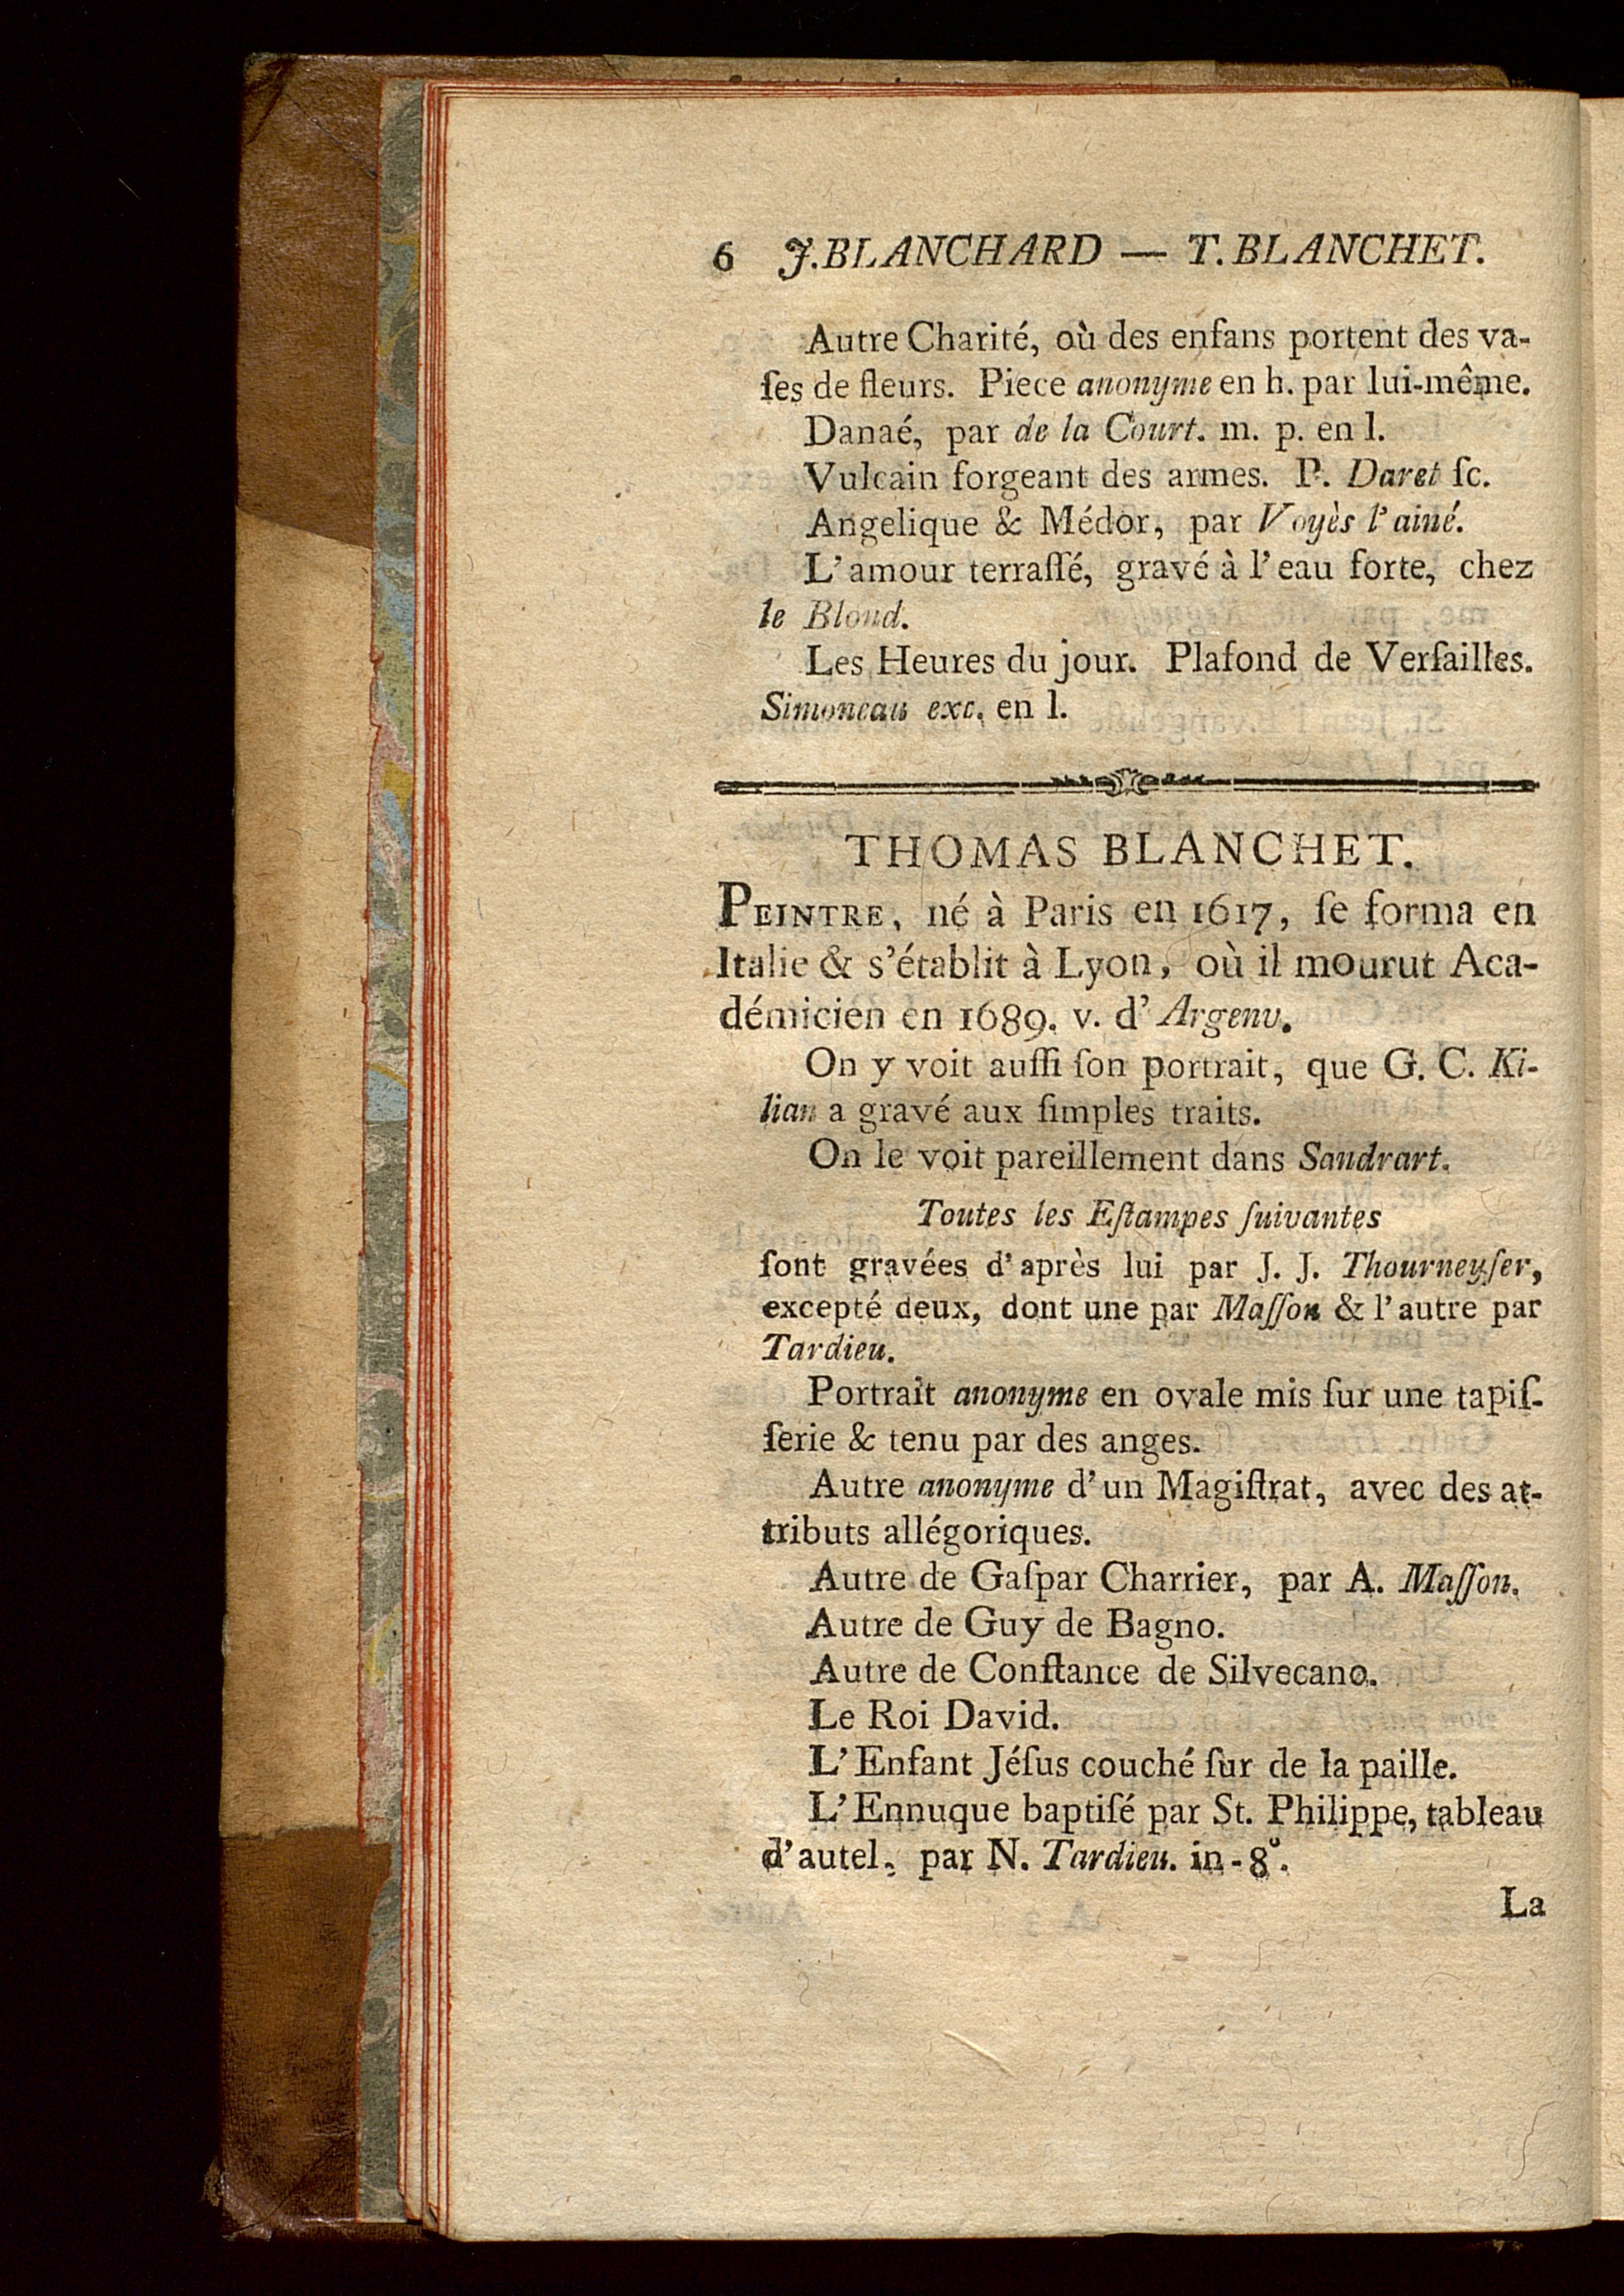 6 J. BLANCHARD — T. BLANCHET.
Autre Charité, où des enfans portent des va-
ſes de fleurs. Piece anonyme en h. par lui-même.
Danaé, par de la Court. m. p. en l.
Vulcain forgeant des armes. P. Daret ſc.
Angelique & Médor, par Voyès l'ainé.
L'amour terraſſé, gravé à l'eau forte, chez
le Blond.
Les Heures du jour. Plafond de Verſailles.
Simoneau exc. en l.
THOMAS BLANCHET.
PEINTRE, né à Paris en 1617, ſe forma en
Italie & s'établit à Lyon, où il mourut Aca-
démicien en 1689. v. d'Argenv.
On y voit auſſi ſon portrait, que G. C. Ki-
lian a gravé aux ſimples traits.
On le voit pareillement dans Sandrart.
Toutes les Eſtampes ſuivantes
ſont gravées d'après lui par J. J. Thourneyſer,
excepté deux, dont une par Maſſon & l'autre par
Tardieu.
Portrait anonyme en ovale mis ſur une tapiſ-
ſerie & tenu par des anges.
Autre anonyme d'un Magiſtrat, avec des at-
tributs allégoriques.
Autre de Gaſpar Charrier, par A. Maſſon.
Autre de Guy de Bagno.
Autre de Conſtance de Silvecano.
Le Roi David.
L'Enfant Jéſus couché ſur de la paille.
L'Ennuque baptiſé par St. Philippe, tableau
d'autel, par N. Tardieu. in-8°.
La